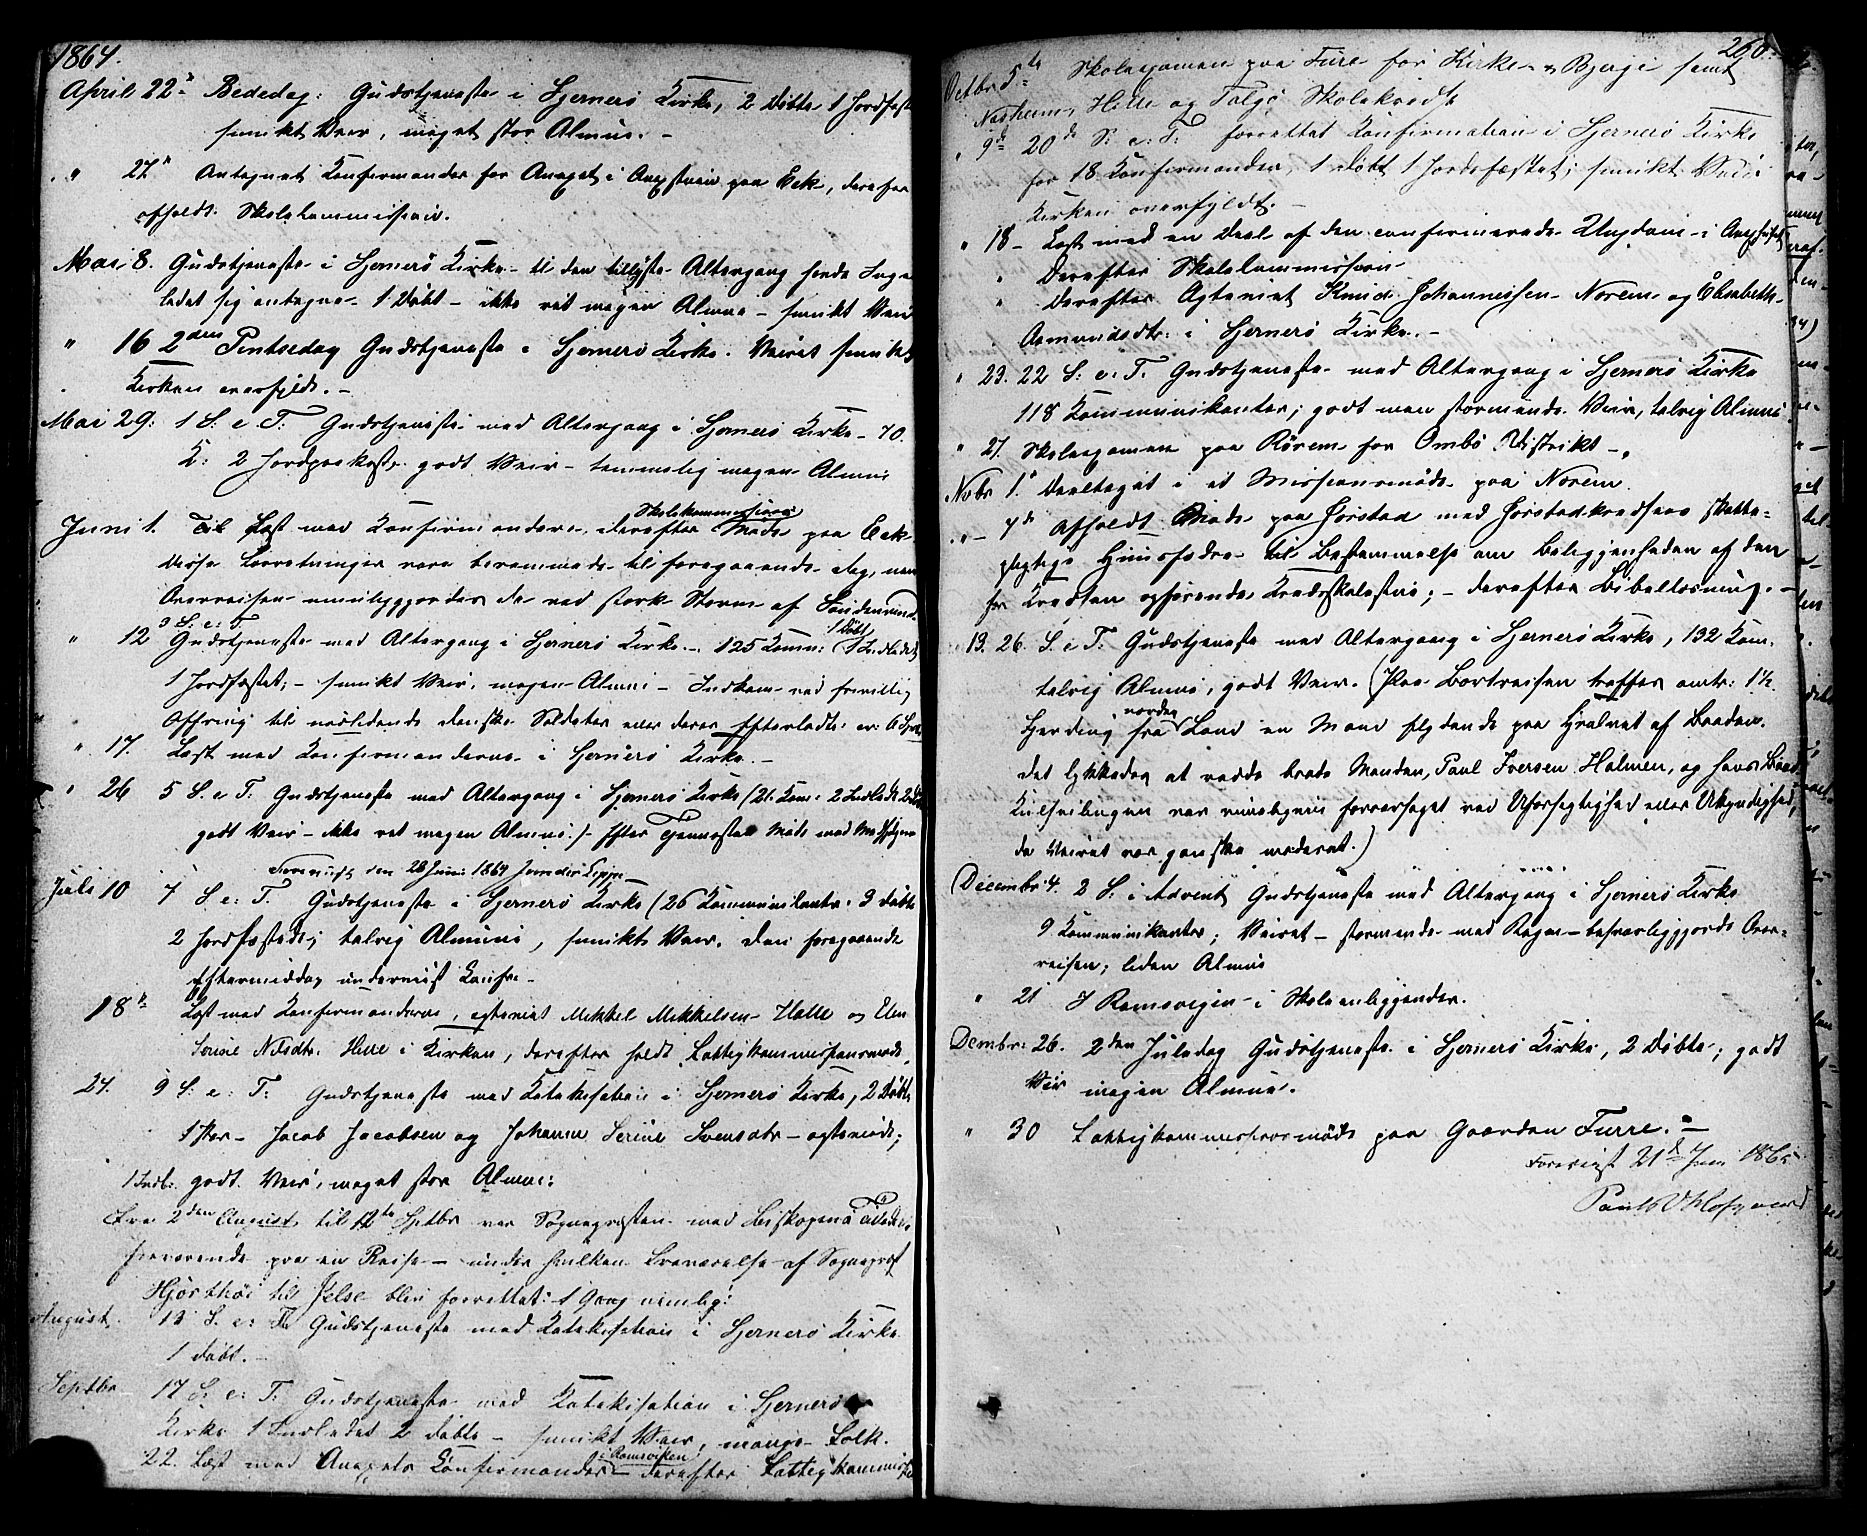 1864.
April 22de Bededag: Gudstjeneste i Sjernerö Kirke, 2 Döbte 1 Jordfæst
smukt Veir, meget stor Almue. –
" 27de Antagnet Konfirmander for Annexet i Annexstuen paa Eek, derefter
afholdt Skolekommission.
Mai 8. Gudstjeneste i Sjernerö Kirke – til den tillyste Altergang havde Ingen
ladet sig antegne – 1 Döbt – ikke ret megen Almue – smukt Veir
" 16 2den Pintsedag Gudstjeneste i Sjernerö Kirke. Veiret smukt
Kirken overfyldt. –
Mai 29: 1 S. e. T. Gudstjeneste med Altergang i Sjernerö Kirke – 70.
K: 2 Jordpaakastede godt Veir – temmelig megen Almue
Juni 1. Læst med Konfirmanderne, derefter Skolekommissions Möde paa Eek
Disse Forretninger vare berammede til foregaaende Dag, men
Overreisen umuliggjordes da ved stærk Storm af Söndenvind.
" 12 3 S. e. T. Gudstjeneste med Altergang i Sjernerö Kirke – 125 Komm: 1 Döbt 1 Indledet
1 Jordfæstet; – smukt Veir, megen Almue – Indkom ved frivillig
Offring til nödlidende danske Soldater eller deres Efterladte
" 17. Læst med Konfirmanderne i Sjernerö Kirke. –
" 26 5 S. e. T. Gudstjeneste med Altergang i Sjernerö Kirke (21 Kom: 2 Indledte 2 Döbte
godt Veir – ikke ret megen Almue.) – Efter Tjenesten Möde med Medhjelperne
Foreviist den 28 Juni 1864 Jens von der Lippe
Juli 10 7 S. e. T. Gudstjeneste i Sjernerö Kirke (26 Kommunikanter. 3 Döbte
2 Jordfæstede; talrig Almue, smukt Veir. Den foregaaende
Eftermiddag underviist Konfir –
18de Læst med Konfirmanderne, egteviet Mikkel Mikkelsen Helle og Elen
Serine Nilsdtr. Helle i Kirken, derefter holdt Fattigkommissionsmöde.
24. 9 S. e. T. Gudstjeneste med Katekisation i Sjernerö Kirke, 2 Döbte
1 Par – Jacob Jacobsen og Johanne Serine Svensdtr – egteviede;
1 Indl. godt Veir, meget stor Almue:
Fra 2den August til 12te Septbr var Sognepræsten med Biskopens Tilladelse
fraværende paa en Reise – under hvilken Fraværelse af Sognepræst
Hjorthöi til Jelse blev forrettet 1 Gang nemlig:
August. 13 S. e. T. Gudstjeneste med Katekisation i Sjernerö Kirke
1 Döbt. –
Septbr 17 S. e. T. Gudstjeneste med Katekisation i Sjernerö
Kirke 1 Indledet 2 Döbte – smukt Veir, mange Folk.
22. Læst med Annexets Konfirmander i Ramsvigen – derefter Fattigkommission
260.
Octbr 5te Skoleexamen paa Furre for Kirke- og Bjergi samt
Næsheim, Helle og Talgö Skolekredse
" 9de 20de S. e. T. forrettet Konfirmation i Sjernerö Kirke
for 18 Konfirmander, 1 Döbt 1 Jordsfæstet; smukt Veir
Kirken overfyldt. –
" 18 – Læst med en Deel af den confirmerede Ungdom i Annexstuen
" Derefter Skolekommission
" Derefter Egteviet Knud Johannessen Norem og Elisabeth
Aamundsdtr. i Sjernerö Kirke. –
" 23. 22 S. e. T. Gudstjeneste med Altergang i Sjernerö Kirke
118 Kommunikanter; godt men stormende Veir, talrig Almue
" 27. Skoleexamen paa Körem for Ombö Distrikt –.
Nvbr 1. Deeltaget i et Missionsmöde paa Norem.
" – 7de Afholdt Möde paa Jörstad med Jörstadkredsens skatte-
pligtige Huusfædre til Bestemmelse om Beliggenheden af den
for Kredsen opförende Kredsskolestue; – derefter Bibellæsning. –
13. 26. S. e. T. Gudstjeneste med Altergang i Sjernerö Kirke, 132 Kom.
talrig Almue, godt Veir. (Paa Bortreisen traffes omtr: 1½
Fjerding fra norden Land en Mand flydende paa Hvalvet af Baaden.
Det lykkedes at redde baade Manden, Paul Iversen Halmen, og hans Baad
Kulseilingen var rimeligviis foraarsaget ved Uforsigtighed eller Ukyndighed,
da Veiret var ganske moderat.)
Decembr 4. 2 S. i Advent Gudstjeneste med Altergang i Sjernerö Kirke
9 Kommunikanter; Veiret – stormende med Regn – besværliggjorde Over-
reisen; liden Almue
" 21 I Ramsvigen – i Skoleanliggender.
Dcembr: 26. 2den Juledag Gudstjeneste i Sjernerö Kirke, 2 Döbte; godt
Veir megen Almue.
" 30 Fattigkommissionsmöde paa Gaarden Furre. –
Foreviist 21de Juni 1865